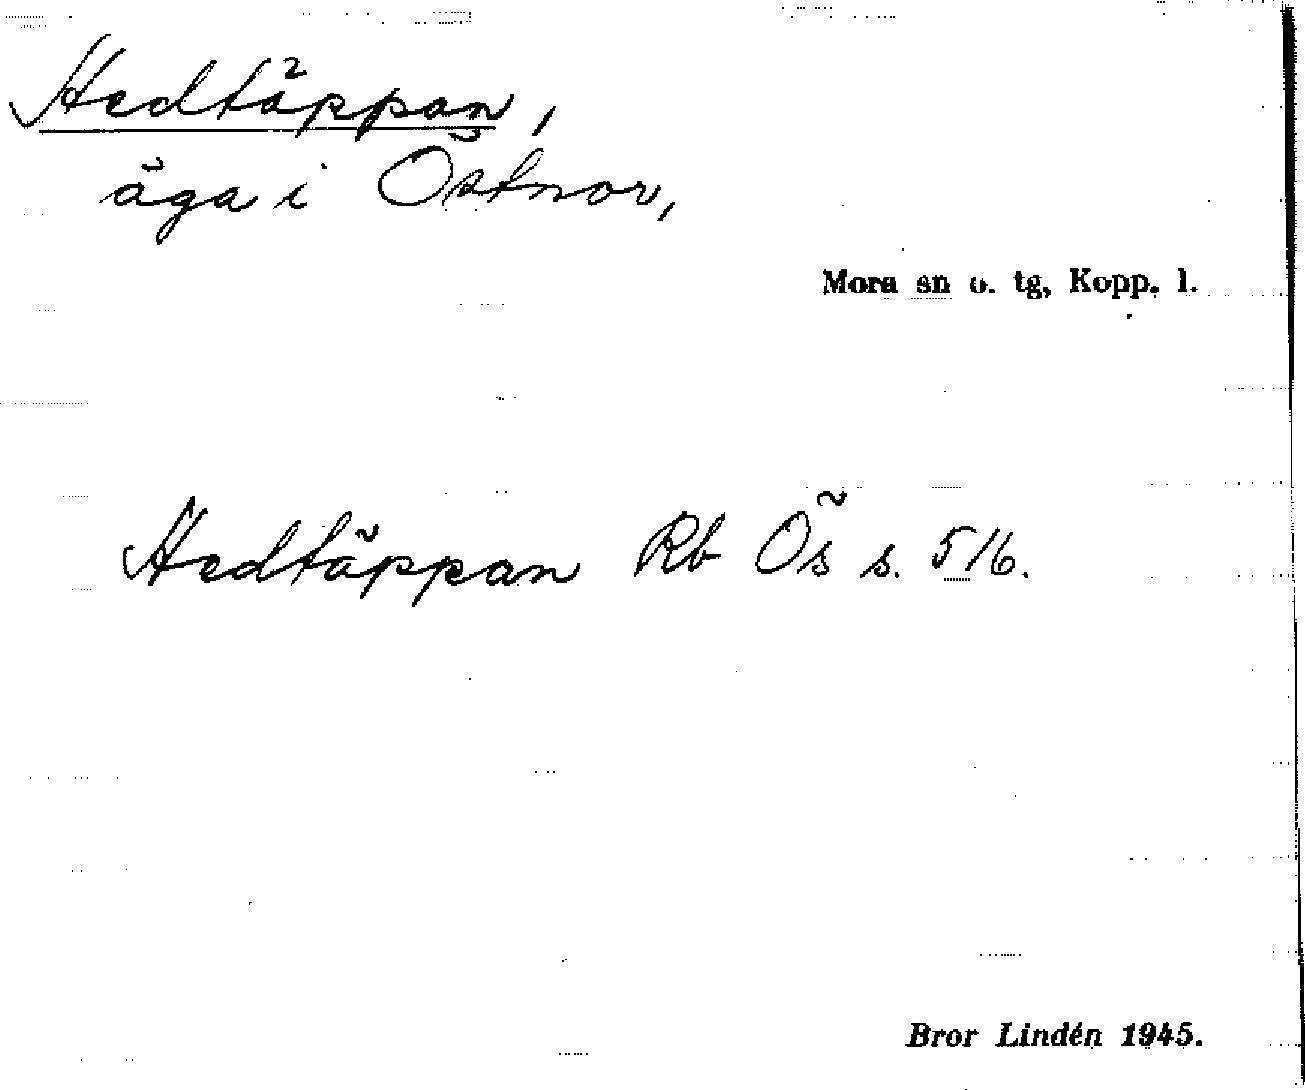 Hedtäppan,
äga i Östnor,
Mora sn o. tg, Kopp. l.
Hedtäppan Rb Ös s. 516.
Bror Lindén 1945.